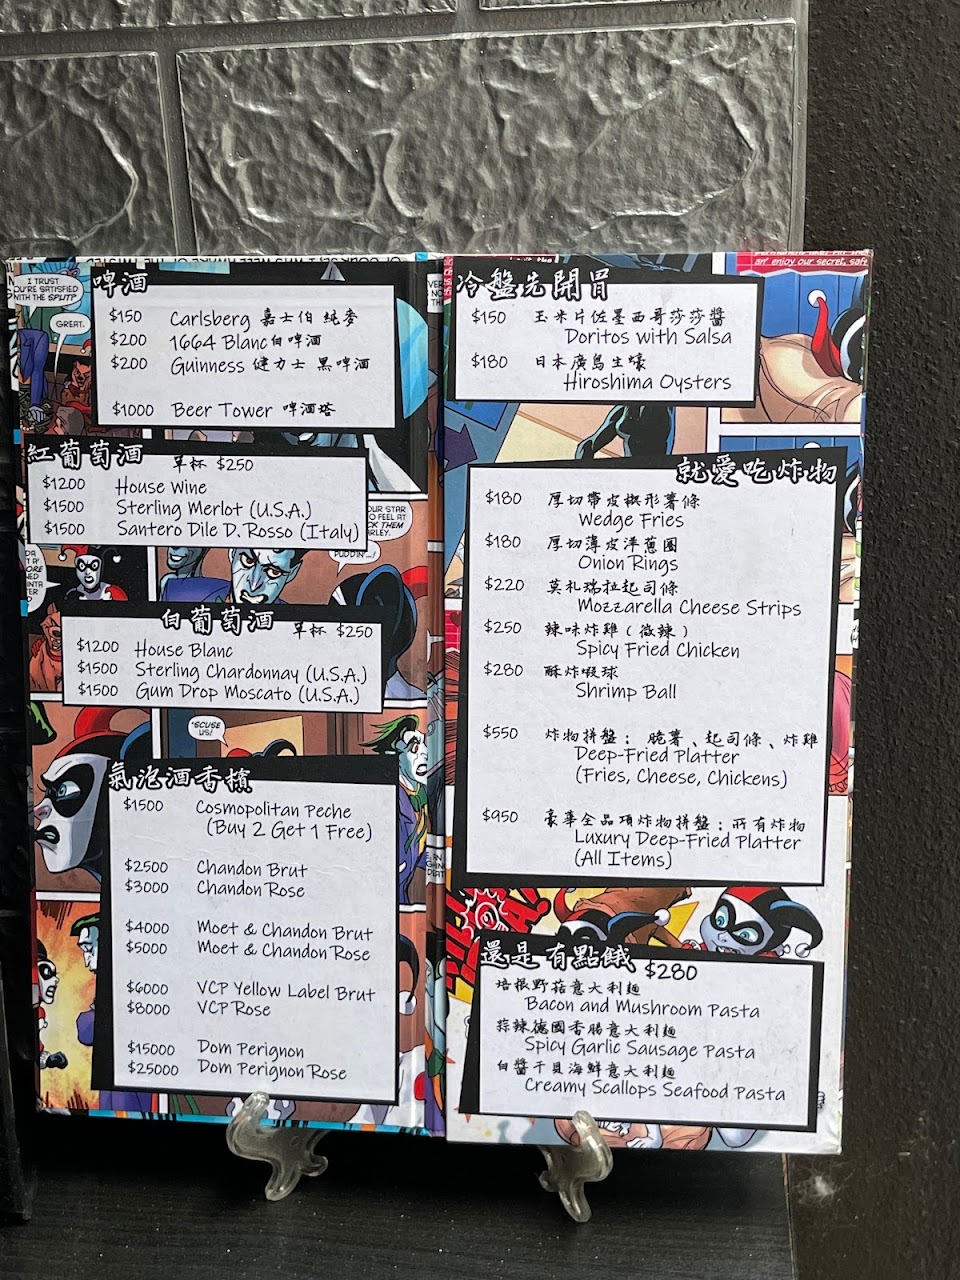 I TRUST
YOU'RE SATISFIED
WITH THE SPLIT?
GREAT.
啤酒
$150 Carlsberg 嘉士伯 純麥
$200 1664 Blanc白啤酒
$200 Guinness 健力士 黑啤酒
$1000 Beer Tower 啤酒塔
紅葡萄酒
單杯 $250
$1200 House Wine
$1500 Sterling Merlot (U.S.A.)
$1500 Santero Dile D. Rosso (Italy)
白葡萄酒
單杯 $250
$1200 House Blanc
$1500 Sterling Chardonnay (U.S.A.)
$1500 Gum Drop Moscato (U.S.A.)
'SCUSE
US!
氣泡酒香檳
$1500 Cosmopolitan Peche
(Buy 2 Get 1 Free)
$2500 Chandon Brut
$3000 Chandon Rose
$4000 Moet & Chandon Brut
$5000 Moet & Chandon Rose
$6000 VCP Yellow Label Brut
$8000 VCP Rose
$15000 Dom Perignon
$25000 Dom Perignon Rose
an' enjoy our secret, safe
冷盤先開胃
$150 玉米片佐墨西哥莎莎醬
Doritos with Salsa
$180 日本廣島生蠔
Hiroshima Oysters
就愛吃炸物
$180 厚切帶皮楔形薯條
Wedge Fries
$180 厚切薄皮洋蔥圈
Onion Rings
$220 莫札瑞拉起司條
Mozzarella Cheese Strips
$250 辣味炸雞(微辣)
Spicy Fried Chicken
$280 酥炸蝦球
Shrimp Ball
$550 炸物拼盤: 脆薯、起司條、炸雞
Deep-Fried Platter
(Fries, Cheese, Chickens)
$950 豪華全品項炸物拼盤:所有炸物
Luxury Deep-Fried Platter
(All Items)
還是 有點餓 $280
培根野菇意大利麵
Bacon and Mushroom Pasta
蒜辣德國香腸意大利麵
Spicy Garlic Sausage Pasta
白醬干貝海鮮意大利麵
Creamy Scallops Seafood Pasta